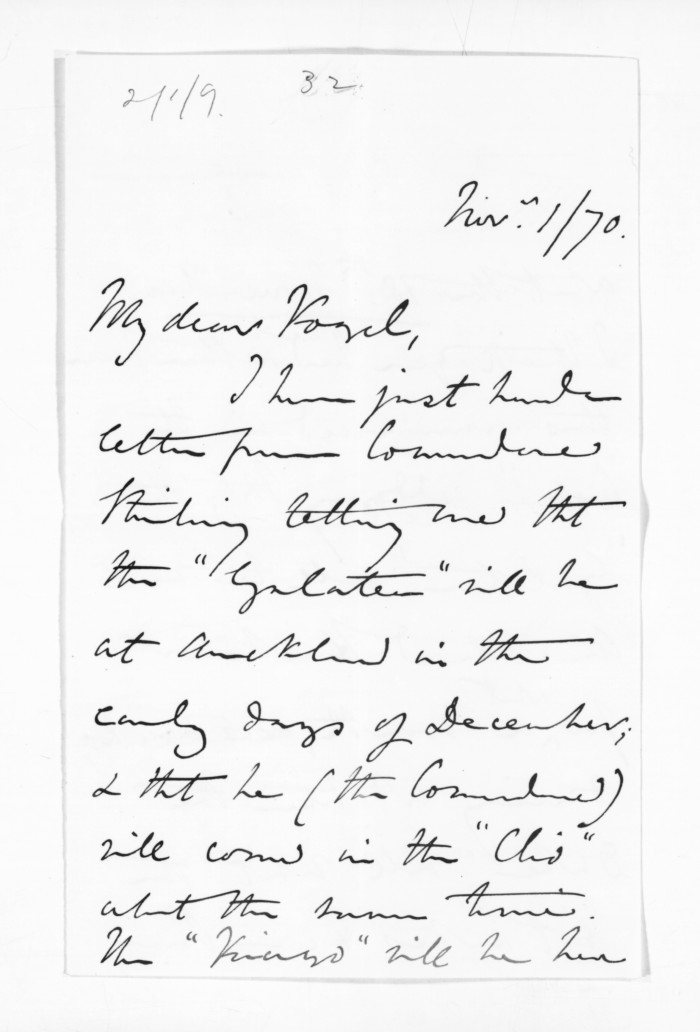 2/1/9. 32
Novr. 1/70.
My dear Vogel,
I have just had a
letter from Commodore
Stirling telling me that
the "Galatea" will be
at Auckland in the
early days of December;
& that he (the Commodore)
will come in the "Clio"
about the same time.
The "Virago" will be here